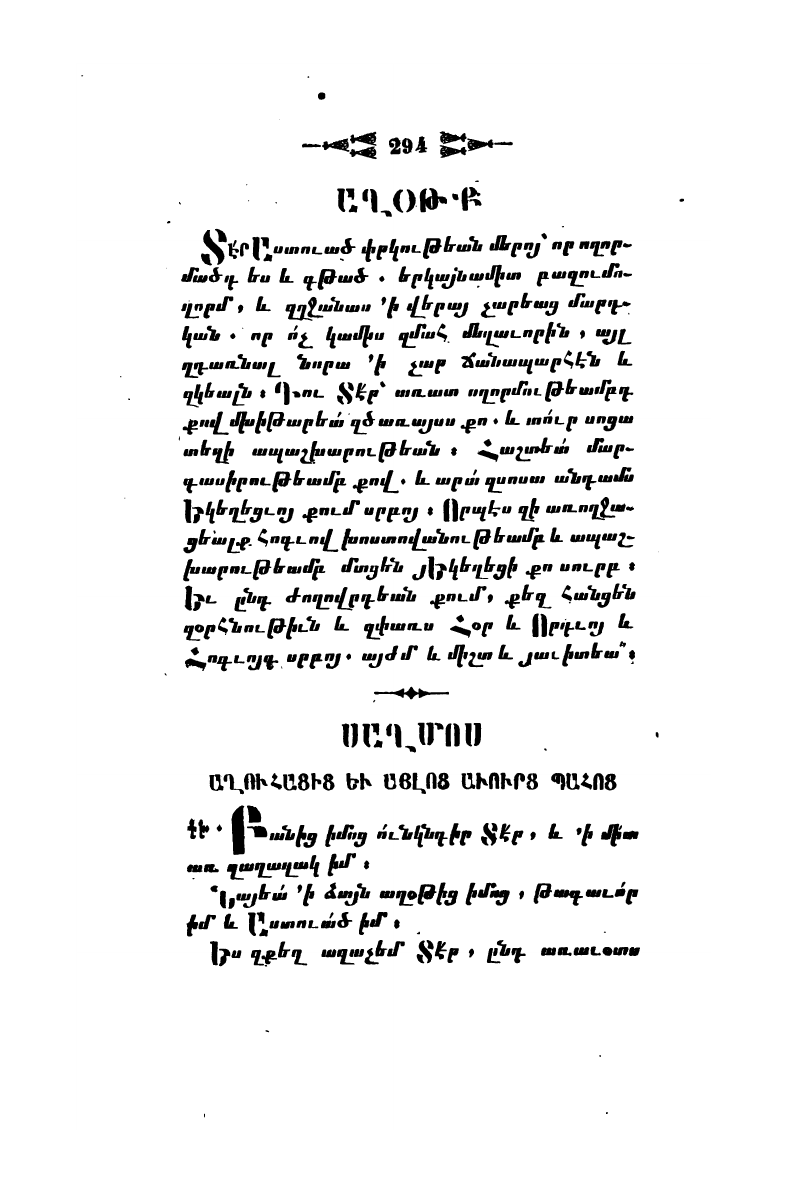 294
ԱՂՕԹՔ
Տէր Աստուած փրկութեան մերոյ՝ որ ողոր-
մածդ ես և գթած . երկայնամիտ բազումո-
ղորմ , և զղջանաս ՚ի վերայ չարեաց մարդ-
կան . որ ո՛չ կամիս զմահ մեղաւորին , այլ
զդառնալ նորա ՚ի չար ճանապարհէն և
զկեալն ։ Դու Տէր՝ առատ ողորմութեամբդ
քով մխիթարեա՛ զծառայսս քո . և տո՛ւր սոցա
տեղի ապաշխարութեան ։ Հաշտեա՛ մար-
գասիրութեամբ քով . և արա՛ զսոսա անդամս
Եկեղեցւոյ քում սրբոյ ։ Որպէս զի առողջա-
ցեալք հոգւով խոստովանութեամբ և ապաշ-
խարութեամբ մտցեն յԵկեղեցի քո սուրբ ։
Եւ ընդ ժողովրդեան քում , քեզ հանցեն
զօրհնութիւն և զփառս Հօր և Որդւոյ և
Հոգւոյդ սրբոյ . այժմ և միշտ և յաւիտեա՟ ։
ՍԱՂՄՈՍ
ԱՂՈՒՀԱՑԻՑ ԵՒ ԱՅԼՈՑ ԱՒՈՒՐՑ ՊԱՀՈՑ
Բանից իմոց ո՛ւնկնդիր Տէր , և ՚ի միտ
առ զաղաղակ իմ ։
Նայեա՛ ՚ի ձայն աղօթից իմոց , թագաւոր
իմ և Աստուած իմ ։
Ես զքեզ աղաչեմ Տէր , ընդ առաւօտս